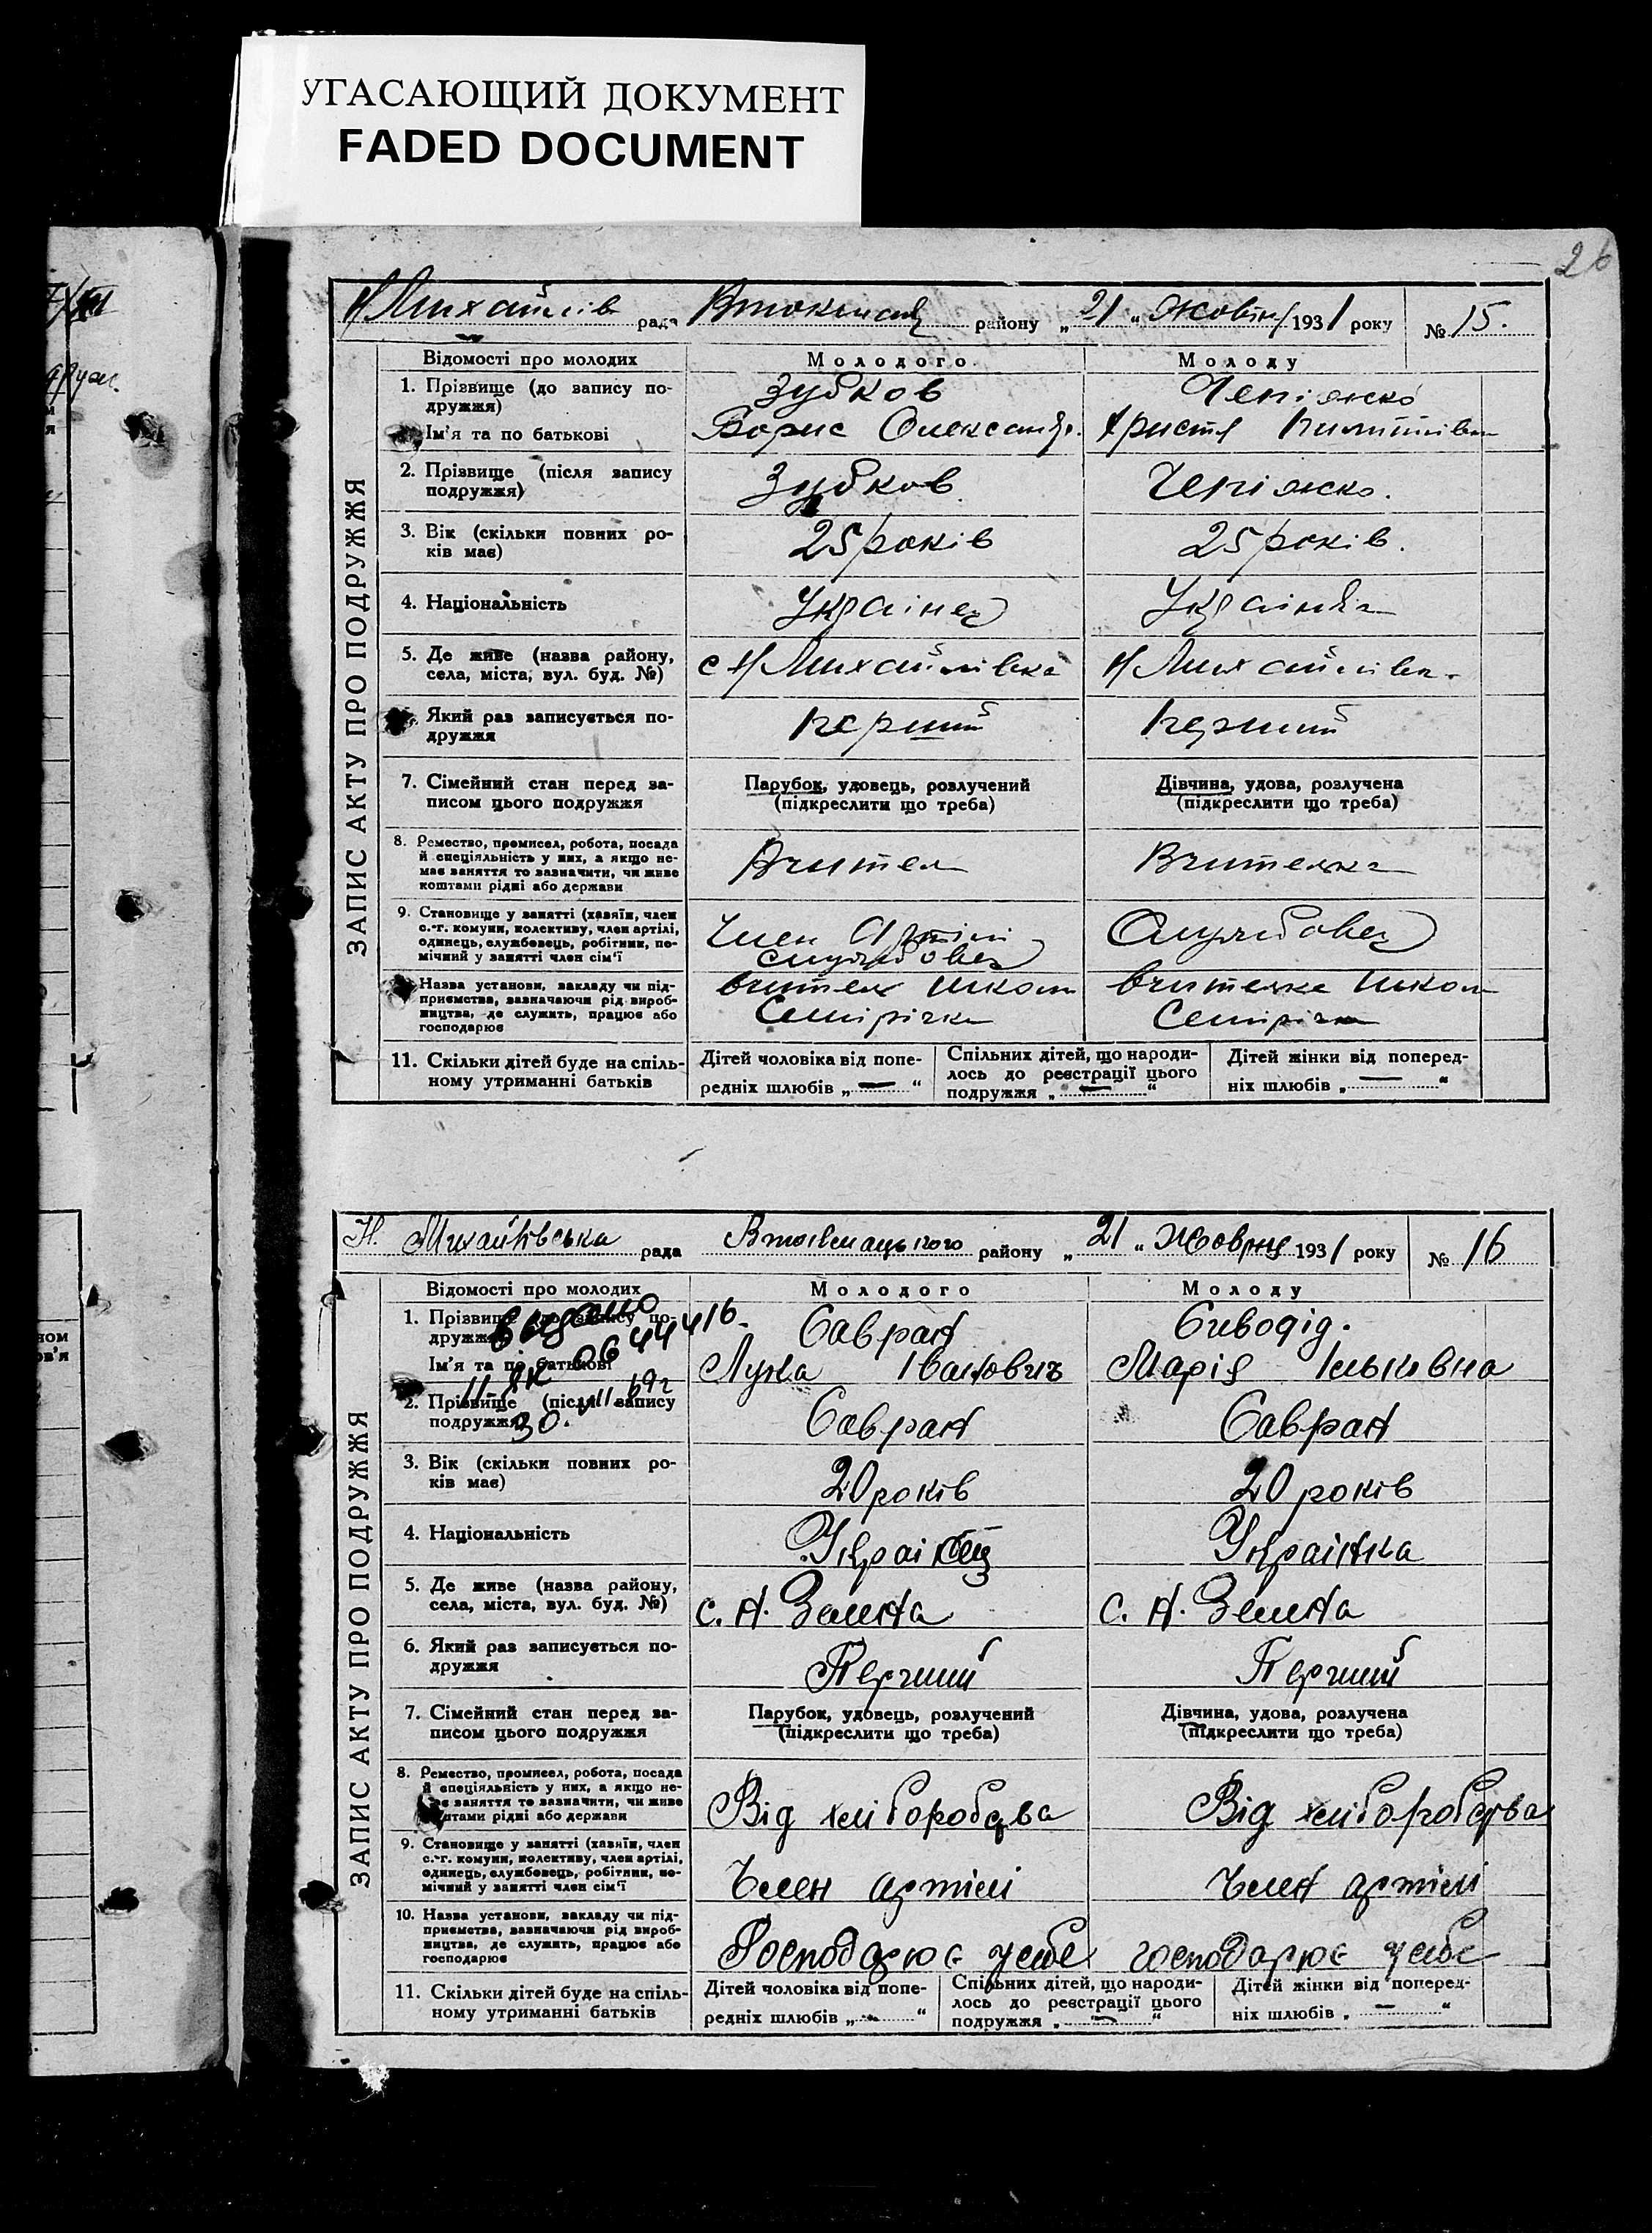 УГАСАЮЩИЙ ДОКУМЕНТ
FADED DOCUMENT
26
Н Михайлів рада Втокмац району „21“ Жовтн/1931 року № 15.
ЗАПИС АКТУ ПРО ПОДРУЖЖЯ
Відомості про молодих Молодого Молоду
1. Прізвище (до запису подружжя) Зубков
Ім'я та по батькові Борис Олександр. Христя
2. Прізвище (після запису подружжя) Зубков
3. Вік (скільки повних років має) 25 років 25 років.
4. Національність Українец Українка
5. Де живе (назва району, села, міста, вул. буд. №) с Н Михайлівка Н Михайлівк.
Який раз записується подружжя перший перший
7. Сімейний стан перед записом цього подружжя Парубок, удовець, розлучений (підкреслити що треба) Дівчина, удова, розлучена (підкреслити що треба)
8. Ремество, промисел, робота, посада й спеціяльність у них, а якщо немає заняття то зазначити, чи живе коштами рідні або держави Вчител Вчителька
9. Становище у занятті (хазяїн, член с.-г. комуни, колективу, член артілі, одинець, службовець, робітник, помічний у занятті член сім'ї Член Артілі службовец Службовец
Назва установи, закладу чи підприємства, зазначаючи рід виробництва, де служить, працює або господарює вчител школи Семирічки вчителка школи Семирічки
11. Скільки дітей буде на спільному утриманні батьків Дітей чоловіка від попередніх шлюбів „—“ Спільних дітей, що народилось до реєстрації цього подружжя „—“ Дітей жінки від попередніх шлюбів „—“
Н. Михайлівська рада Втокмацького району „21“ Жовтня 1931 року № 16
ЗАПИС АКТУ ПРО ПОДРУЖЖЯ
Відомості про молодих Молодого Молоду
1. Прізвище (до запису подружжя) Савран Сиводід.
Ім'я та по батькові Лука Іванович Марія Ільківна
видано
II-ЯК 0644416.
30.VII 69г
2. Прізвище (після запису подружжя) Савран Савран
3. Вік (скільки повних років має) 20 років 20 років
4. Національність Українец Українка
5. Де живе (назва району, села, міста, вул. буд. №) с. Н. Зелена с. Н. Зелена
6. Який раз записується подружжя Перший Перший
7. Сімейний стан перед записом цього подружжя Парубок, удовець, розлучений (підкреслити що треба) Дівчина, удова, розлучена (підкреслити що треба)
8. Ремество, промисел, робота, посада й спеціяльність у них, а якщо немає заняття то зазначити, чи живе коштами рідні або держави Від хліборобства Від хліборобства
9. Становище у занятті (хазяїн, член с.-г. комуни, колективу, член артілі, одинець, службовець, робітник, помічний у занятті член сім'ї Член артілі Член артілі
10. Назва установи, закладу чи підприємства, зазначаючи рід виробництва, де служить, працює або господарює Господарює у себе господарює у себе
11. Скільки дітей буде на спільному утриманні батьків Дітей чоловіка від попередніх шлюбів „—“ Спільних дітей, що народилось до реєстрації цього подружжя „—“ Дітей жінки від попередніх шлюбів „—“